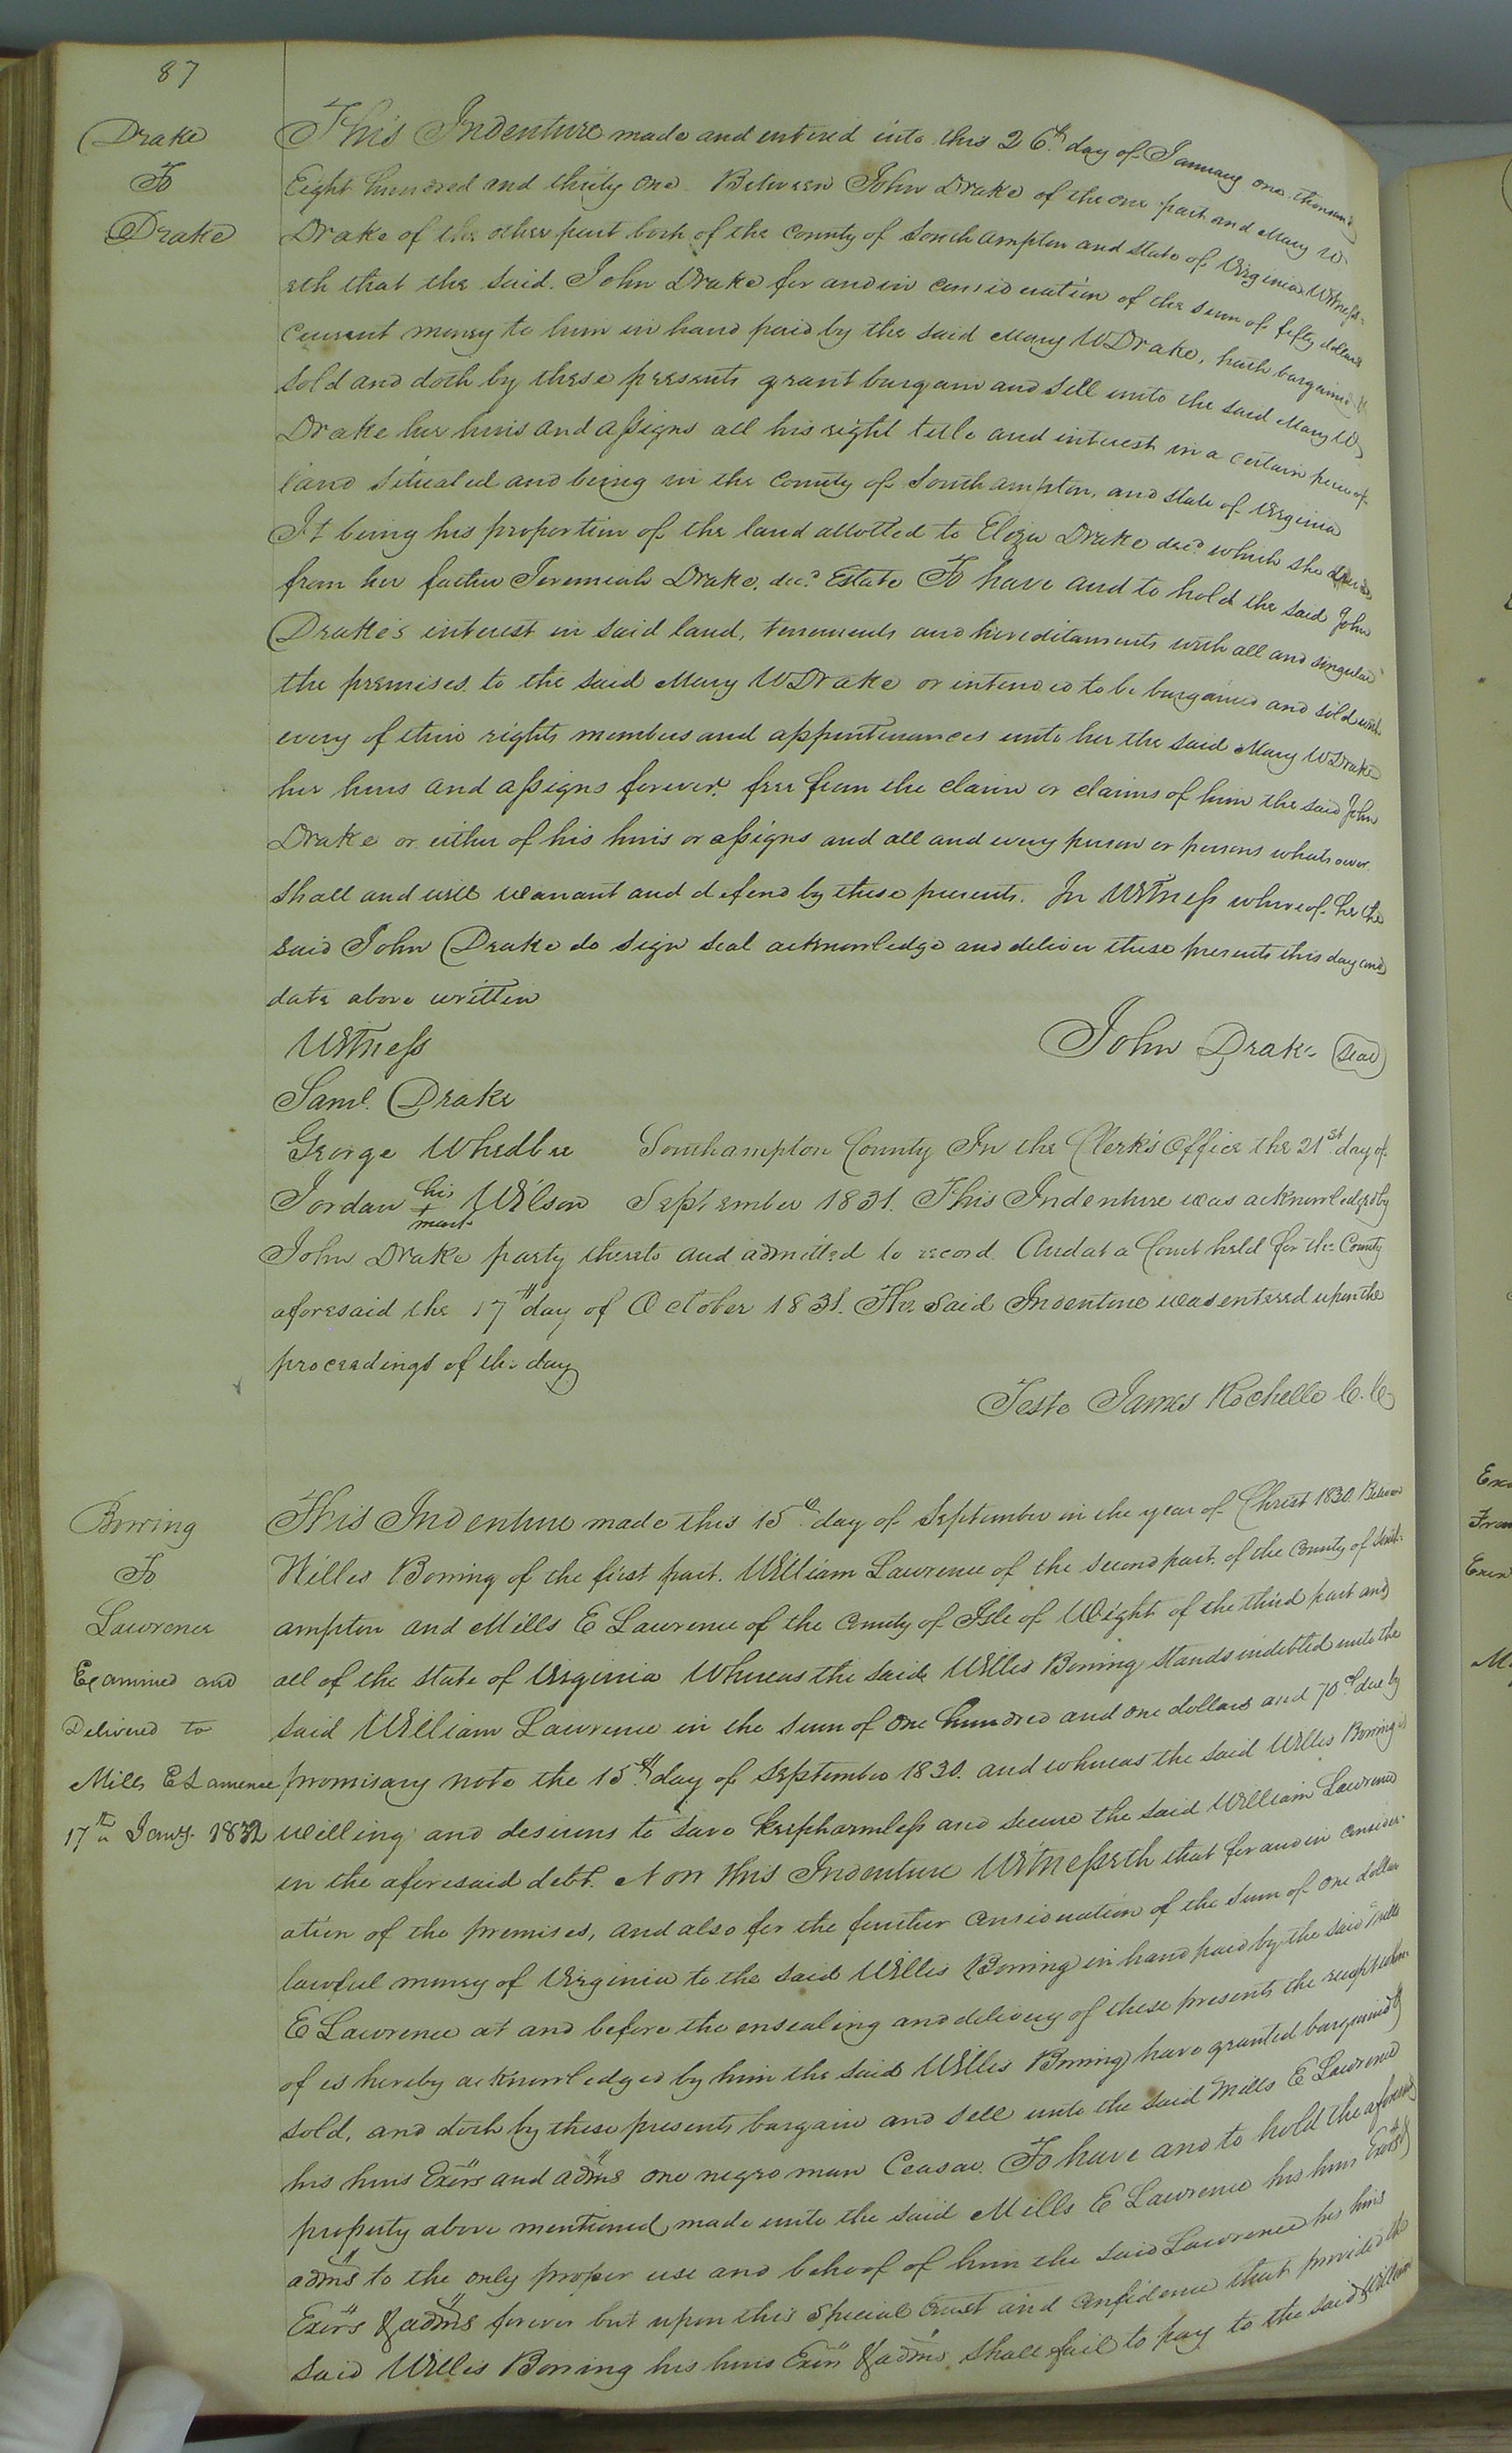 87
Drake
To
Drake
This Indenture made and entered into this 26th day of January one thousand
Eight hundred and thirty one Between John Drake of the one part and Mary W
Drake of the other part both of the County of Southampton and State of Virginia Witness-
eth that the said John Drake for and in consideration of the sum of fifty dollars
current money to him in hand paid by the said Mary W Drake, hath bargained &
sold and doth by these presents grant bargain and sell unto the said Mary W
Drake her heirs and assigns all his right title and interest in a certain piece of
land situated and being in the County of Southampton, and State of Virginia
It being his proportion of the land allotted to Eliza Drake decd which she
from her father Jeremiah Drake, decd Estate To have and to hold the said John
Drake's interest in said land, tenements and hereditaments with all and singular
the premises to the said Mary W Drake or intended to be bargained and sold with
every of their rights members and appurtenances unto her the said Mary W Drake
her heirs and assigns forever free from the claim or claims of him the said John
Drake or either of his heirs or assigns and all and every person or persons whatsoever
shall and will warrant and defend by these presents. In Witness whereof he the
said John Drake do sign seal acknowledge and deliver these presents this day and
date above written
Witness
John Drake Seal
Saml. Drake
George Whedbee Southampton County In the Clerk's Office the 21st day of
Jordan his + mark Wilson September 1831. This Indenture was acknowledged by
John Drake party thereto and admitted to record And at a Court held for the County
aforesaid the 17th day of October 1831. The said Indenture was entered upon the
proceedings of the day
Teste James Rochelle C.C.
Borring
To
Lawrence
Examined and
Delivered to
Mills E Lawrence
17th Jany. 1832
This Indenture made this 15th day of September in the year of Christ 1830. Between
Willes Borring of the first part. William Lawrence of the second part. of the County of South-
ampton and Mills E Lawrence of the County of Isle of Wight of the third part and
all of the State of Virginia Whereas the said Willes Borring stands indebted unto the
said William Lawrence in the sum of one hundred and one dollars and 70 cts due by
promisary note the 15th day of September 1830. and whereas the said Willes Borring is
willing and desirous to save keepharmless and secure the said William Lawrence
in the aforesaid debt. Now this Indenture Witnesseth that for and in consider-
ation of the premises, and also for the further consideration of the sum of one dollar
lawful money of Virginia to the said Willes Borring in hand paid by the said Mills
E Lawrence at and before the ensealing and delivery of these presents the receipt where
of is hereby acknowledged by him the said Willes Borring have granted bargained &
sold, and doth by these presents bargain and sell unto the said Mills E Lawrence
his heirs Exors and adms one negro man Ceasar. To have and to hold the aforesaid
property above mentioned, made unto the said Mills E Lawrence his heirs Exors &
adms to the only proper use and behoof of him the said Lawrence his heirs
Exors & adms forever but upon this special trust and confidence that provided the
said Willes Borring his heirs Exors & adms shall fail to pay to the said William